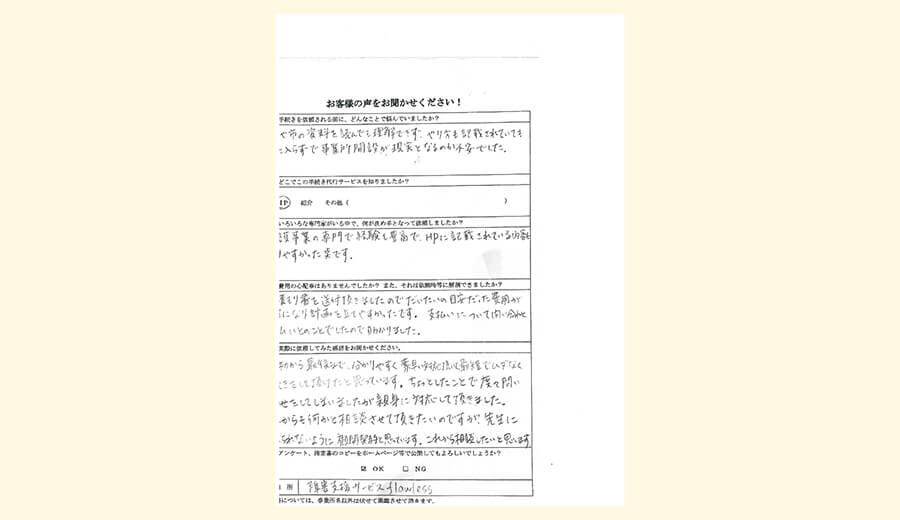 お客様の声をお聞かせください！
手続きを依頼される前に、どんなことで悩んでいましたか？
や市の資料を読んでも理解できず、やり方も記載されていても
に入らずで事業所開設が現実となるのか不安でした。
どこでこの手続き代行サービスを知りましたか？
HP 紹介 その他（ ）
いろいろな専門家がいる中で、何が決め手となって依頼しましたか？
事業の専門で経験も豊富で、HPに記載されている内容も
りやすかった点です。
費用の心配事はありませんでしたか？また、それは依頼時等に解消できましたか？
積り書を送付頂きましたのでだいたいの目安だった費用が
になり計画を立てやすかったです。支払いについても
払いとのことでしたので助かりました。
実際に依頼してみた感想をお聞かせください。
初から最後まで、分かりやすく素早い対応頂いて最短でムダなく
きをして頂けたと思っています。ちょっとしたことで度々問い
せをしてしまいましたが親身に対応して頂きました。
からも何かと相談させて頂きたいのですが、先生に
られないように顧問契約と思っています。これから相談したいと思います
アンケート、指定書のコピーをホームページ等で公開してもよろしいでしょうか？
☑ OK □ NG
所 障害支援サービスflawless
については、事業所名以外は伏せて掲載させて頂きます。